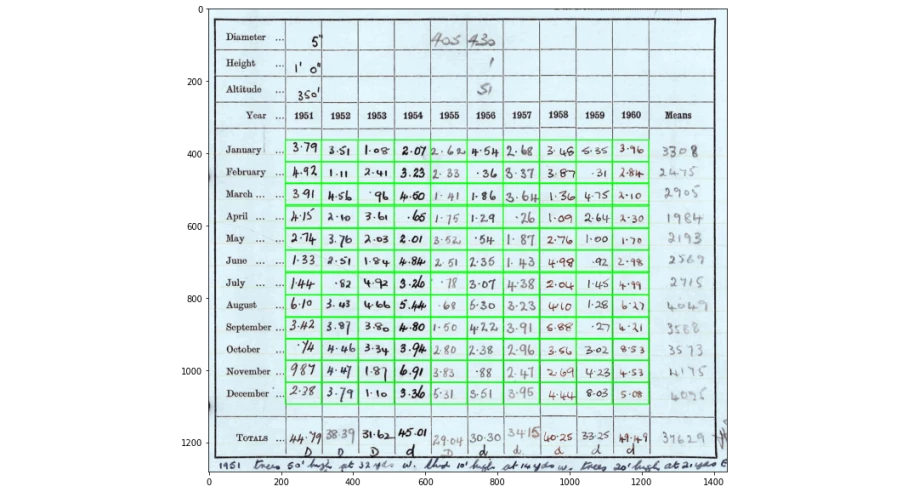 Diameter ... 5" 405 430
Height ... 1' 0" 1
Altitude ... 350' 51
Year ... 1951 1952 1953 1954 1955 1956 1957 1958 1959 1960 Means
January ... 3·79 3·51 1·08 2·07 2·62 4·54 2·68 3·48 5·35 3·96 3308
February ... 4·92 1·11 2·41 3·23 2·33 ·36 3·37 3·87 ·31 2·84 2475
March ... 3 91 4·56 ·96 4·50 1·41 1·86 3·64 1·36 4·75 2·10 2905
April ... ... 4·15 2·10 3·61 ·65 1·75 1·29 ·26 1·09 2·64 2·30 1984
May ... ... 2·74 3·76 2·03 2·01 3·52 ·54 1·87 2·76 1·00 1·70 2193
June ... ... 1·33 2·51 1·84 4·84 2·51 2·35 1·43 4·98 ·92 2·98 2569
July ... ... 1·44 ·82 4·92 3·26 ·78 3·07 4·38 2·04 1·45 4·99 2715
August ... 6·10 3·43 4·66 5·44 ·68 5·30 3·23 4·10 1·28 6·27 4049
September ... 3·42 3·87 3·80 4·80 1·50 4 22 3·91 5·88 ·27 4·21 3568
October ... ·74 4·46 3·34 3·94 2·80 2·38 2·96 3·56 3·02 8·53 3573
November ... 9 87 4·47 1·87 6·91 3·83 ·88 2·47 2·69 4·23 4·53 4175
December ... 2·38 3·79 1·10 3·36 5·31 3·51 3·95 4·44 8·03 5·08
Totals ... 44·79 38·39 31·62 45·01 29·04 30·30 34·15 40·25 33·25 49·49 37629
D D D d D d d d d d
1951 trees 50' high at 32 yds w. shed 10' high at 14 yds w. trees 20' high at 21 yds
0
200
400
600
800
1000
1200
0 200 400 600 800 1000 1200 1400